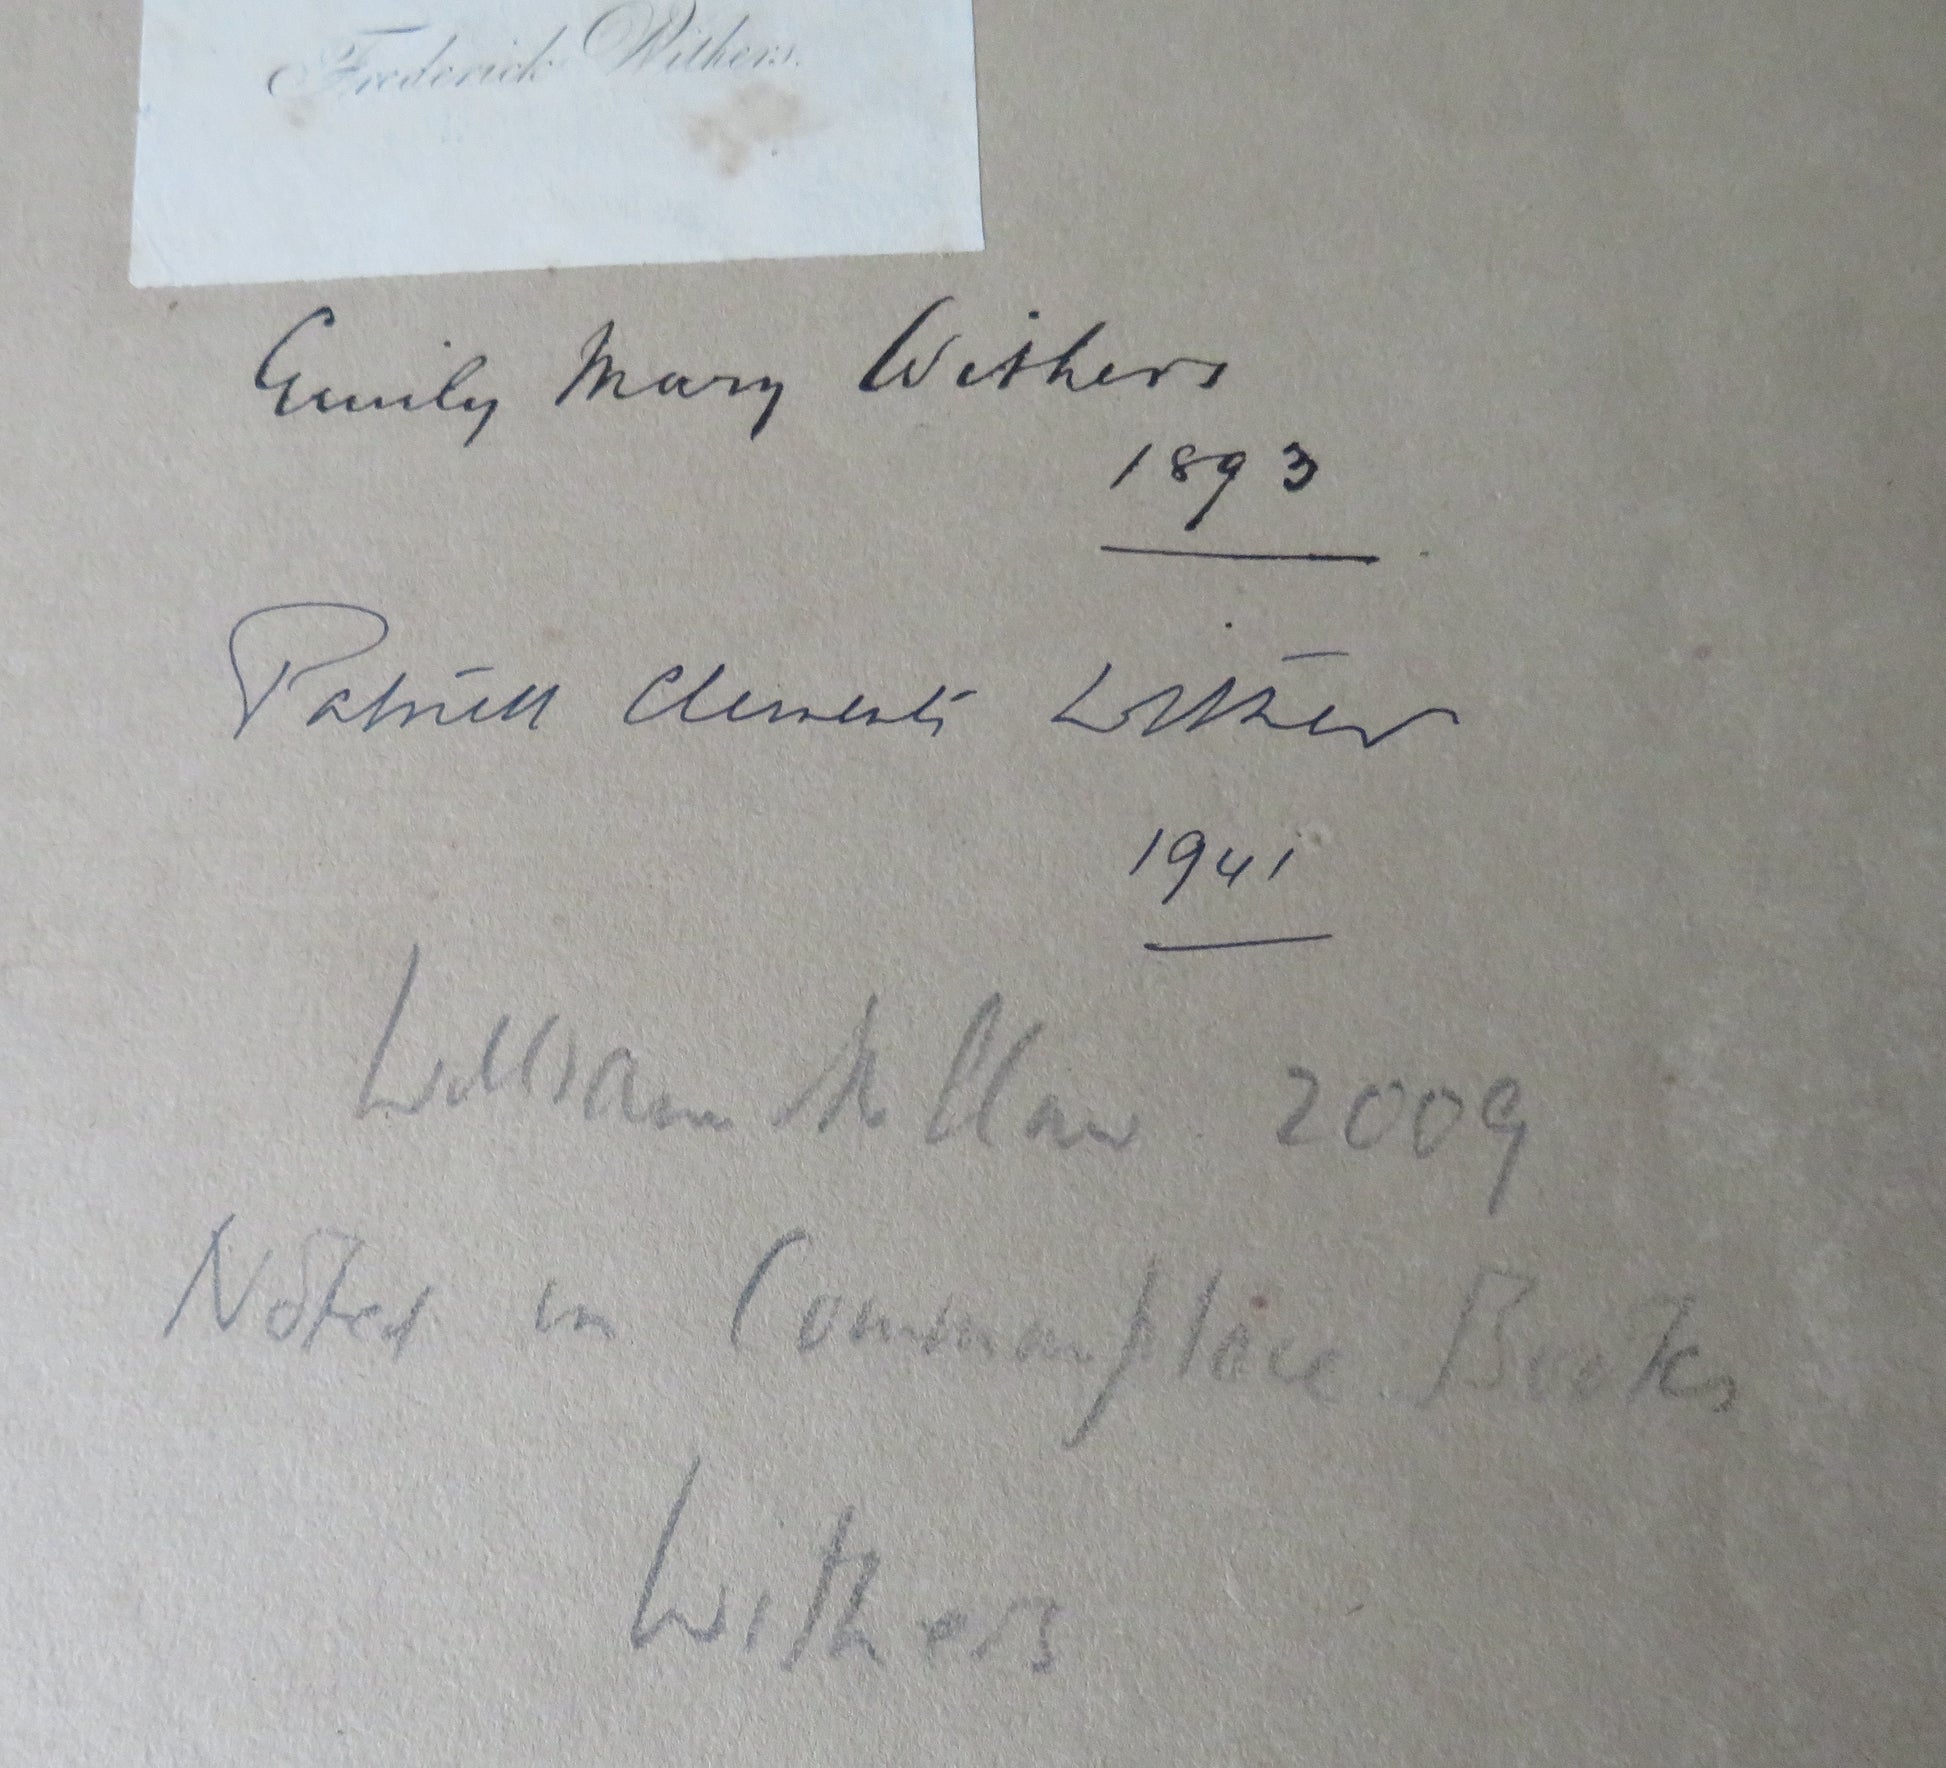 Frederick Withers.
Emily Mary Withers
1893
Patrick Clements Withers
1941
William 2009
Noted in Commonplace Books
Withers